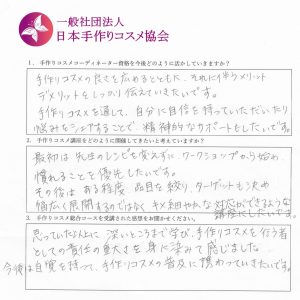 一般社団法人
日本手作りコスメ協会
1．手作りコスメコーディネーター資格を今後どのように活かしていきますか？
手作りコスメの良さを広めるとともに、それに伴うメリット
デメリットをしっかり伝えていきたいです。
手作りコスメを通して、自分に自信を持っていただいたり
悩みをシェアすることで、精神的なサポートもしたいです。
2．手作りコスメ講座をどのように開催してきたいと考えていますか？
最初は先生のレシピを変えずに、ワークショップから始め、
慣れることを優先したいです。
その後はある程度、品目を絞り、ターゲットも決め
幅広く展開するのではなく、キメ細やかな対応ができるような
講座にしたいです。
3．手作りコスメ総合コースを受講された感想をお聞かせください。
思っていた以上に深いところまで学び、手作りコスメを行う者
としての責任の重大さを身に染みて感じました。
今後は自覚を持って、手作りコスメの普及に携わっていきたいです。